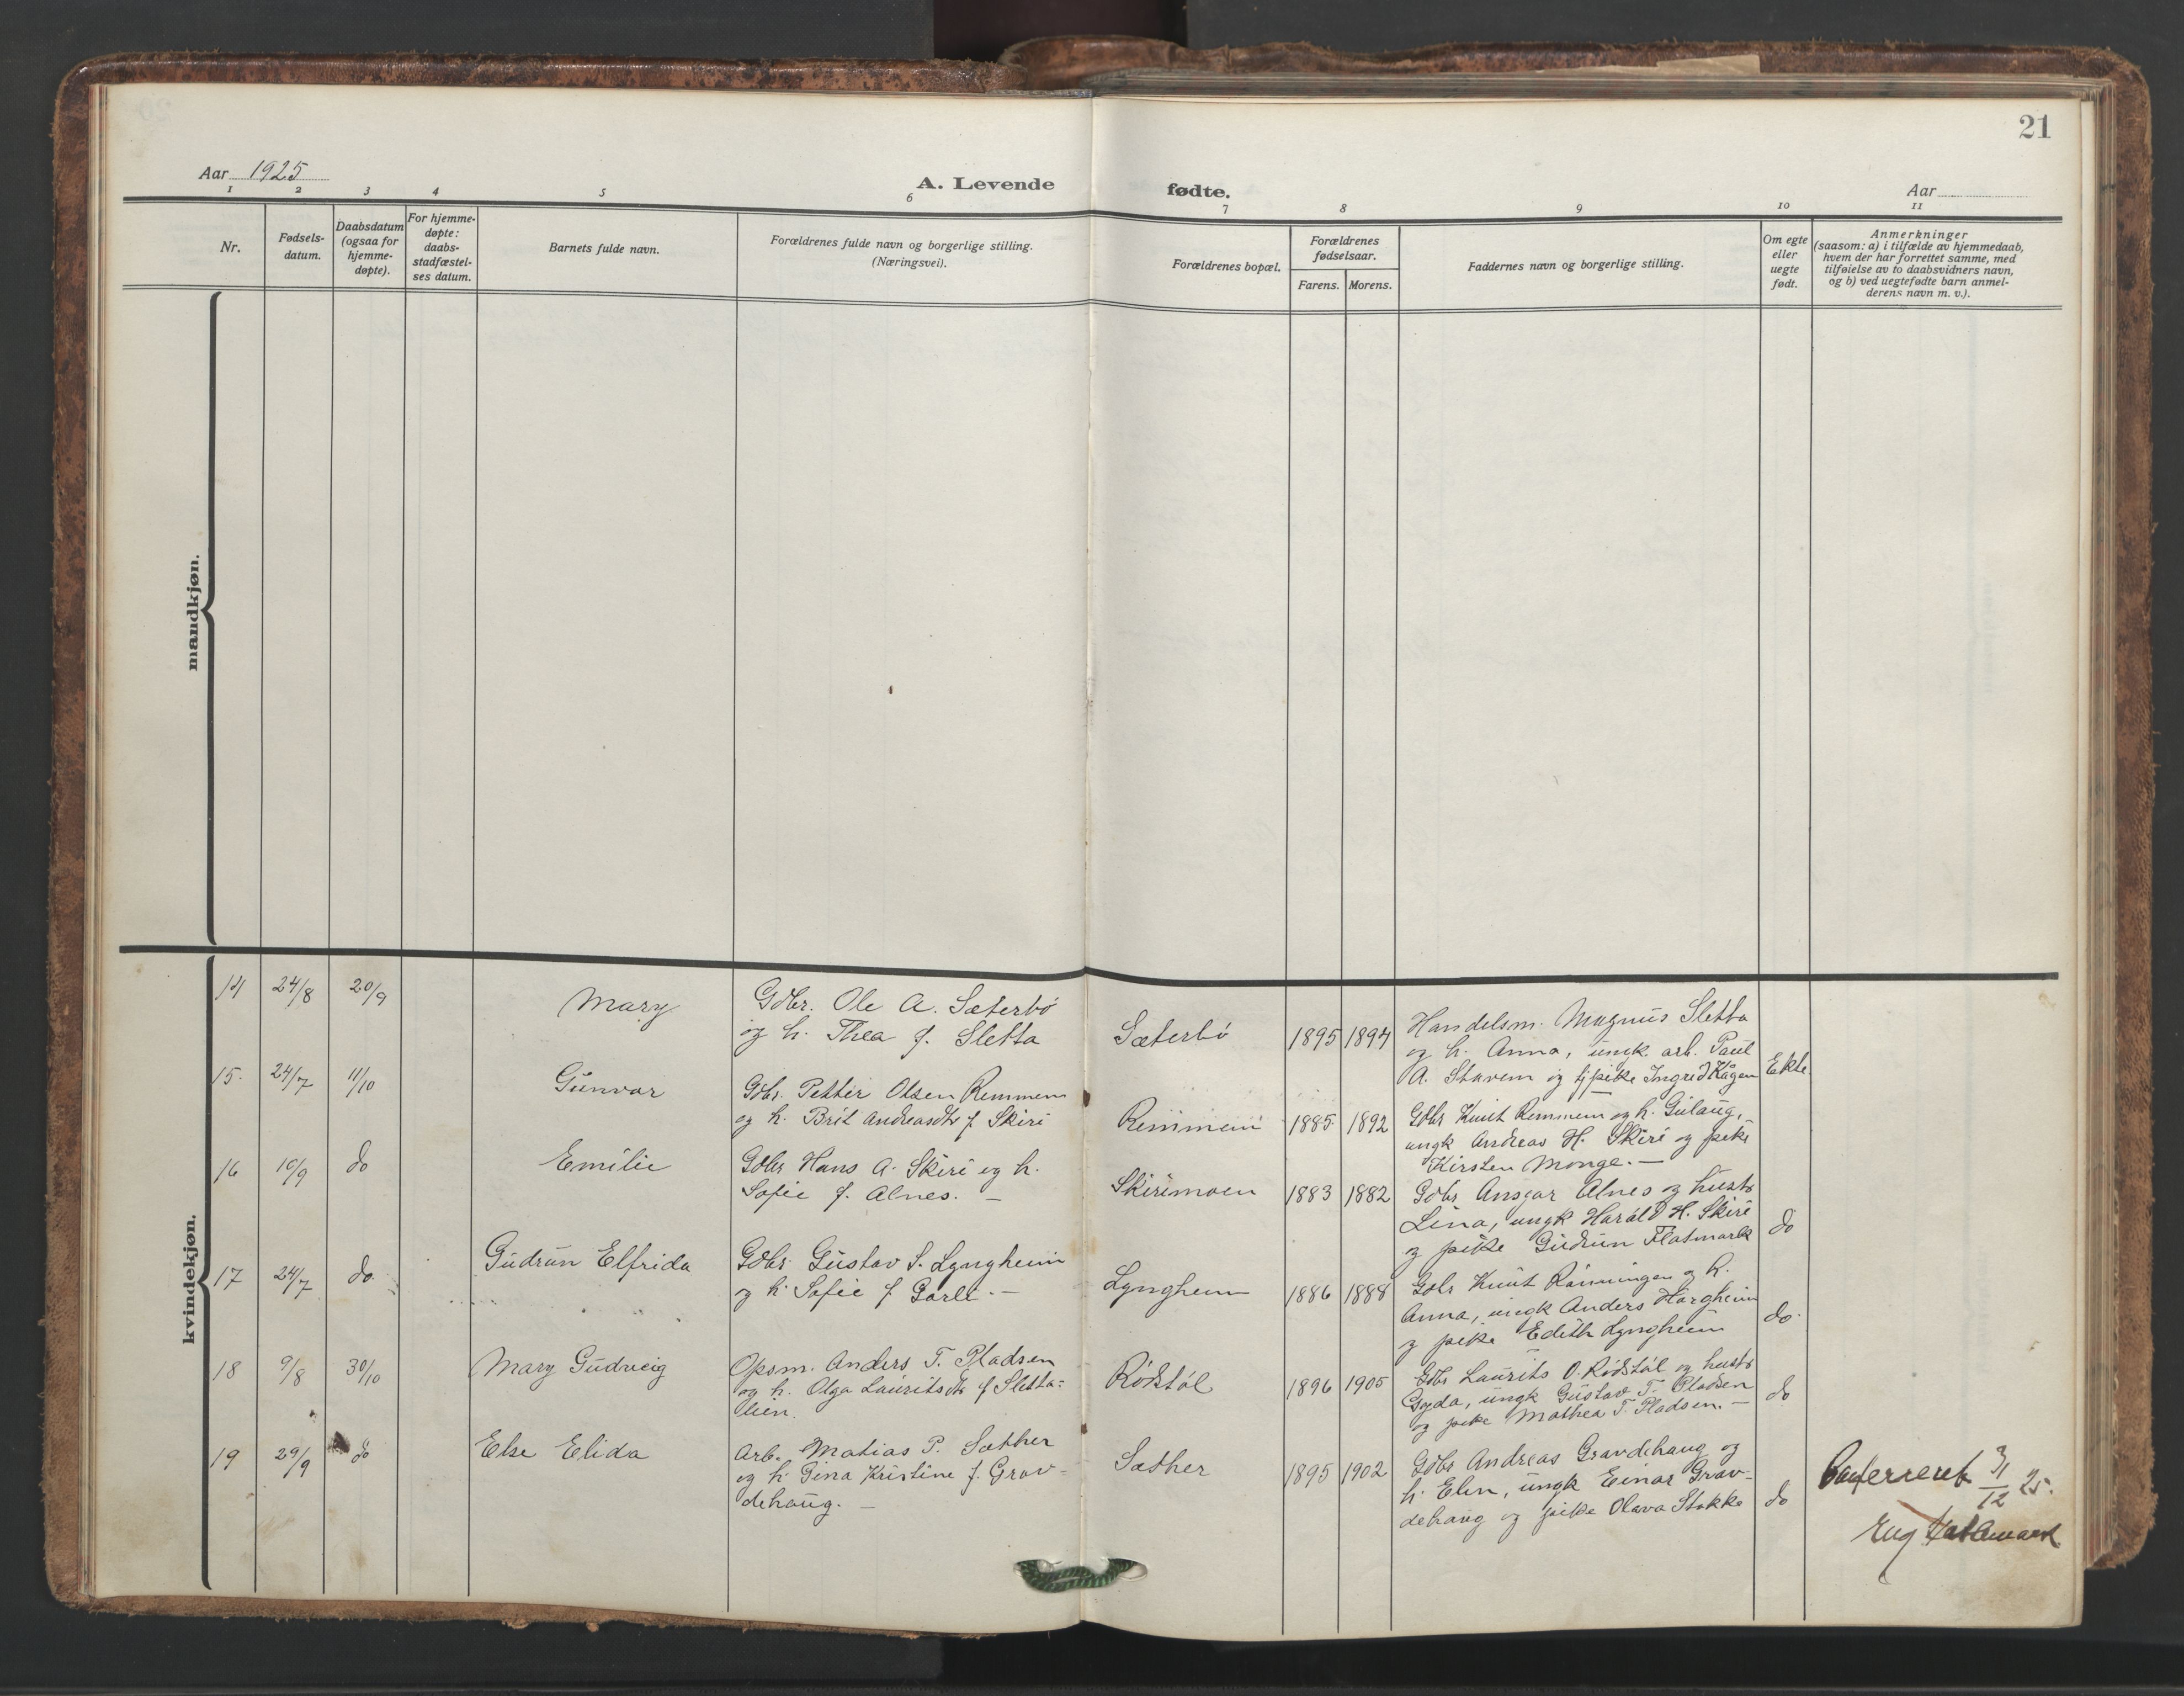 21
Aar 1925
A. Levende fødte.
Aar
1 2 3 4 5 6 7 8 9 10 11
Nr.
Fødsels-
datum.
Daabsdatum
(ogsaa for
hjemme-
døpte).
For hjemme-
døpte:
daabs-
stadfæstel-
ses datum.
Barnets fulde navn.
Forældrenes fulde navn og borgerlige stilling.
(Næringsvei).
Forældrenes bopæl.
Forældrenes
fødselsaar.
Farens. Morens.
Faddernes navn og borgerlige stilling.
Om egte
eller
uegte
født.
Anmerkninger
(saasom: a) i tilfælde av hjemmedaab,
hvem der har forrettet samme, med
tilføielse av to daabsvidners navn,
og b) ved uegtefødte barn anmel-
derens navn m. v.).
mandkjøn.
kvindekjøn.
14 24/8 20/9 Mary
Gdbr. Ole A. Sæterbö
og h. Thea f. Sletta
Sæterbö 1895 1894
Handelsm. Magnus Sletta
og h. Anna, ungk. arb. Paul
A. Stavem og tjpike Ingrid Kågen
Ekte
15. 24/7 11/10 Gunvor
Gdbr. Petter Olsen Remmem
og h. Brit Andreasdtr f. Skiri
Remmem 1885 1892
Gdbr Knut Remmem og h. Gulaug,
ungk Andreas H. Skiri og pike
Kirsten Monge. —
16 10/9 do Emilie
Gdbr Hans A. Skiri og h.
Sofie f. Alnes. —
Skirimoen 1883 1882
Gdbr Ansgar Alnes og hustr
Lina, ungk Harald H. Skiri
og pike Gudrun Flatmark
do
17 24/7 do. Gudrun Elfrida
Gdbr. Gustav S. Lyngheim
og h. Sofie f. Gorle. —
Lyngheim 1886 1888
Gdbr Knut Rönningen og h.
Anna, ungk Anders Horgheim
og pike Edith Lyngheim
do.
18 9/8 30/10 Mary Gudveig
Opsm. Anders T. Pladsen
og h. Olga Lauritsdtr f Sletta-
lien
Rödstöl 1896 1905
Gdbr Laurits O. Rödstöl og hustr
Gyda, ungk Gustav T. Pladsen
og pike Mathea T. Pladsen. —
do
19 29/9 do Else Elida
Arb. Matias P. Sæther
og h. Gina Kristine f. Grav-
dehaug. —
Sæther 1895 1902
Gdbr Andreas Gravdehaug og
h. Elen, ungk Einar Grav-
dehaug og pike Olava Stokke
do
Conferreret 31/12 25.